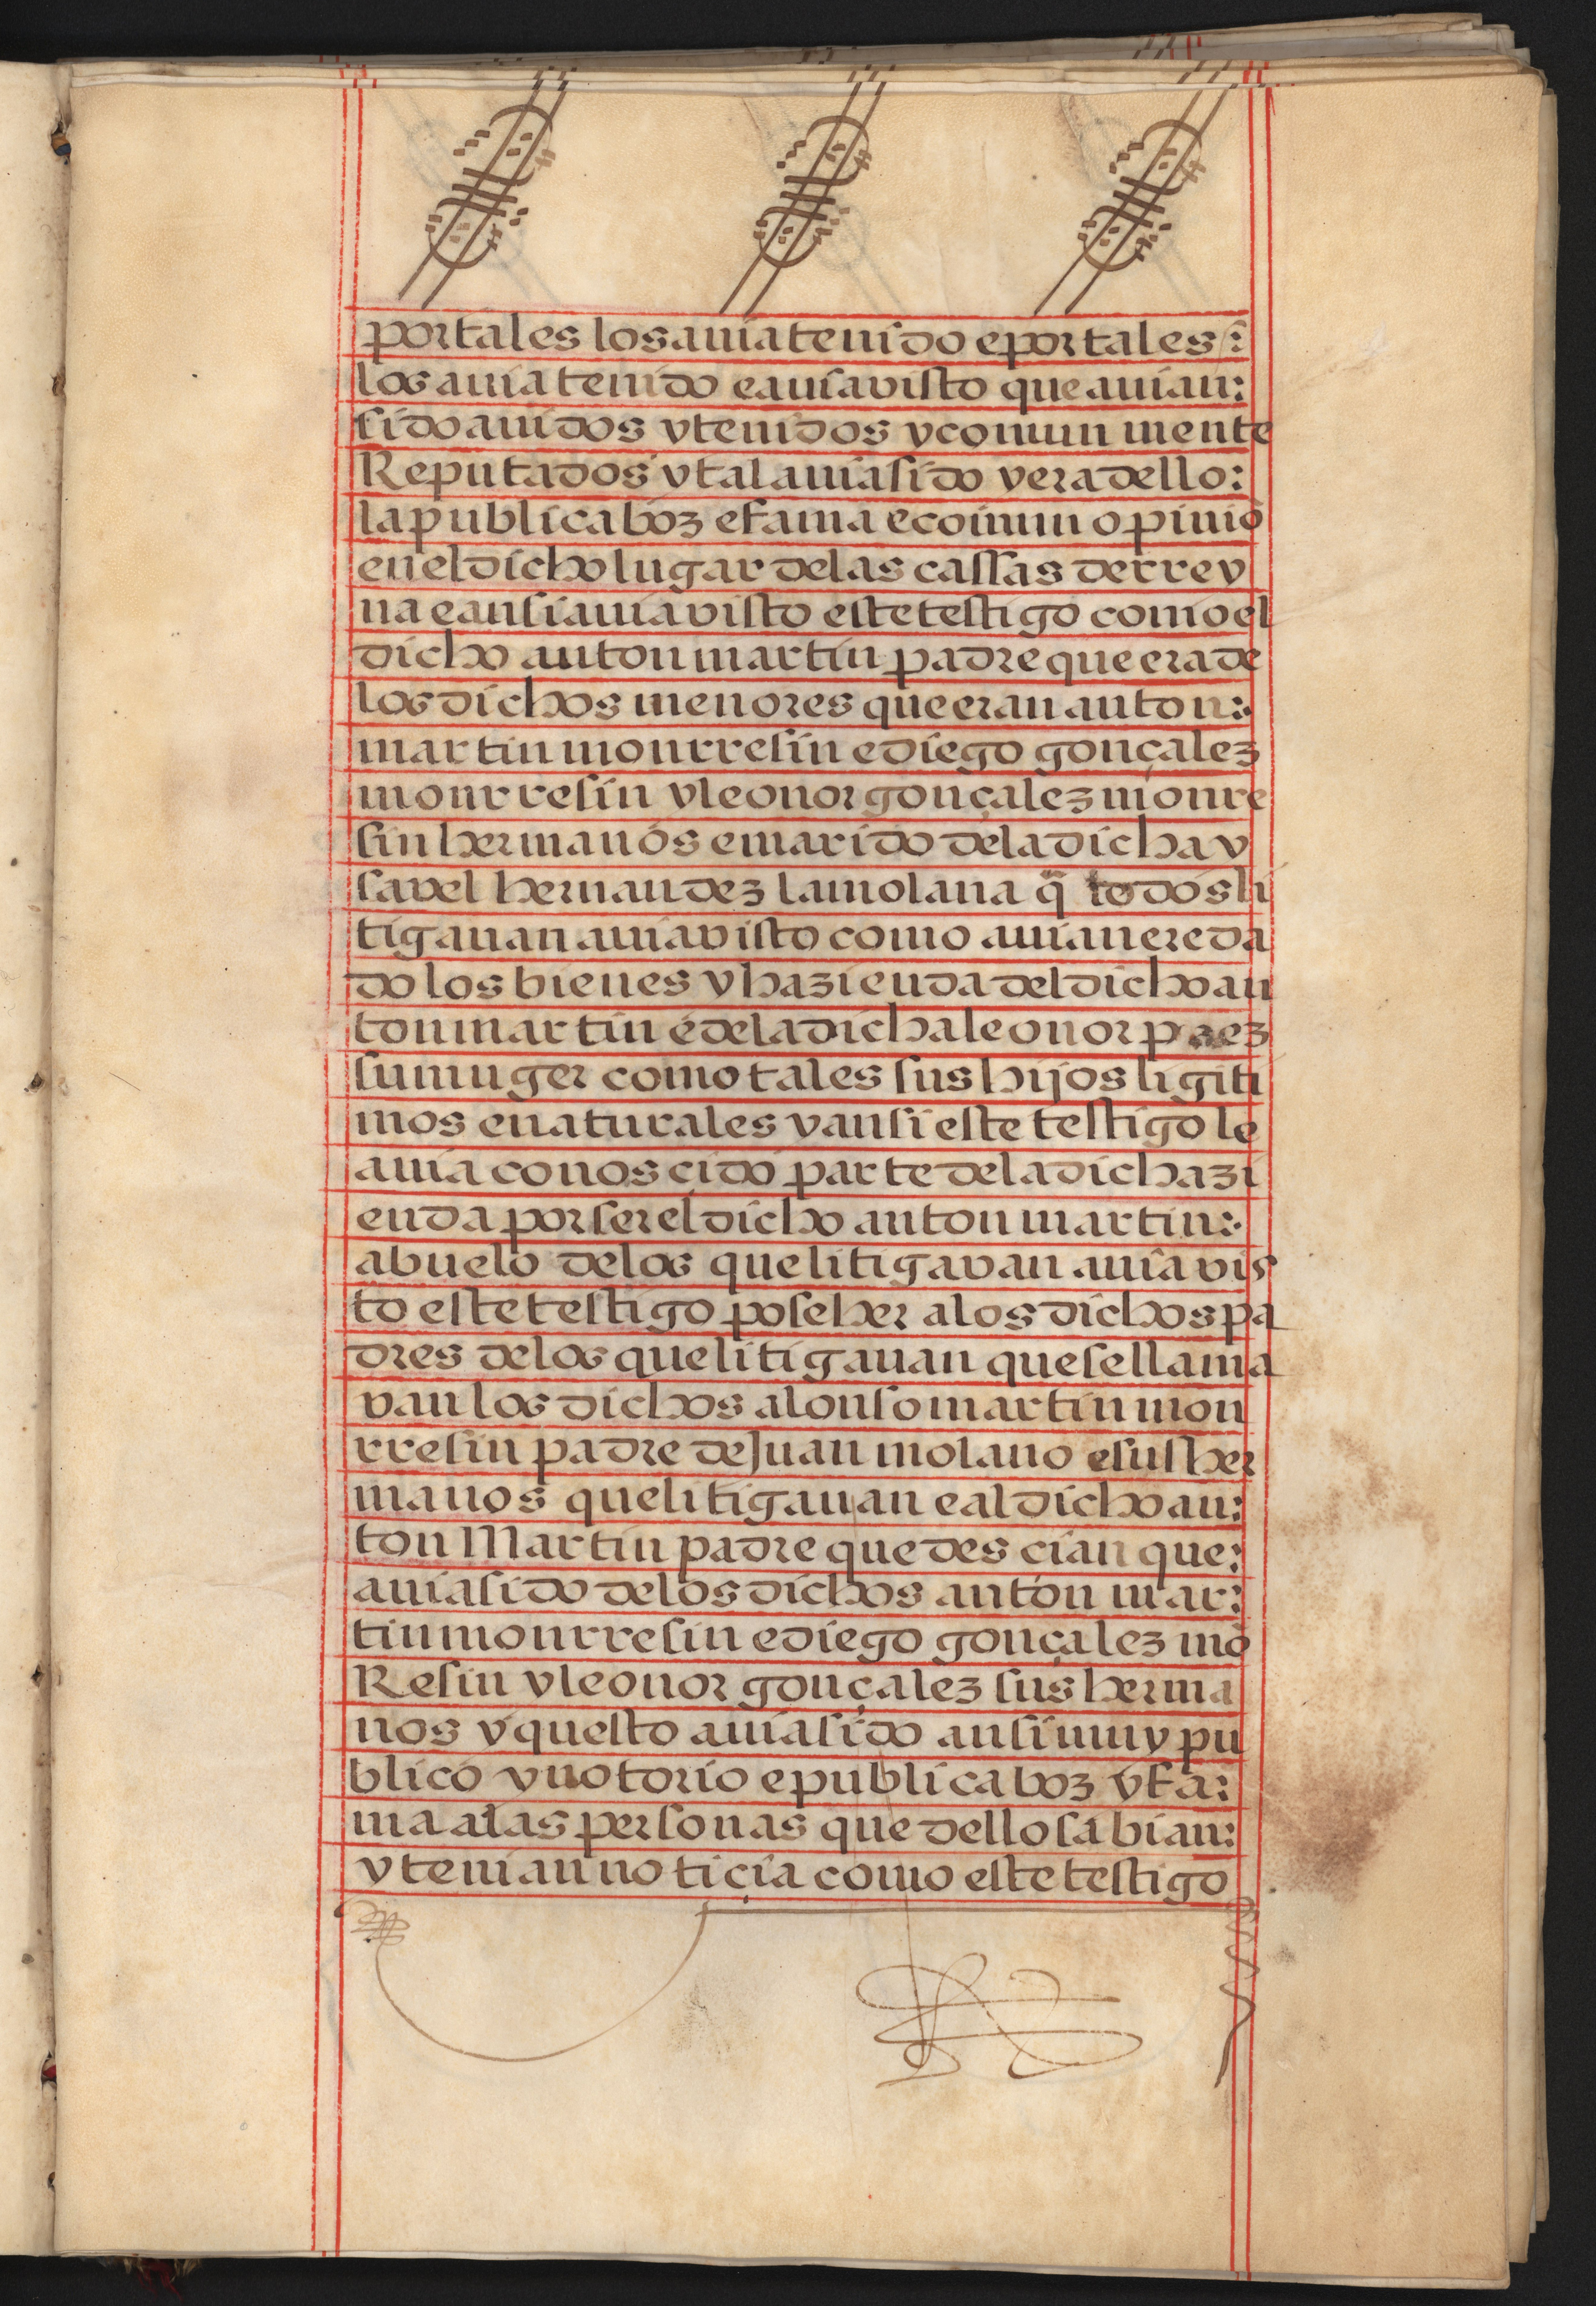 por tales los auia tenido e por tales :
los auia tenido e auia visto que auian :
sido auidos y tenidos y comun mente
Reputados y tal auia sido y era dello :
la publica boz e fama e comun opiniõ
en el dicho lugar de las cassas de rrey
na e ansi auia visto este testigo como el
dicho anton martin padre que era de
los dichos menores que eran anton :
martin monrresin e diego gonçalez
monrresin y leonor gonçalez monre
sin hermanos e marido de la dicha y
savel hernandez la molana q̃ todos li
tigauan auia visto como auian ereda
do los bienes y hazienda del dicho an
ton martin e de la dicha leonor perez
su muger como tales sus hijos ligiti
mos e naturales y ansi este testigo le
auia conoscido parte de la dicha zi
enda por ser el dicho anton martin :
abuelo de los que litigavan auia vis
to este testigo poseher a los dichos pa
dres de los que litigauan que se llama
van los dichos alonso martin mon
rresin padre de Juan molano e sus her
manos que litigauan e al dicho an :
ton Martin padre que descian que :
auia sido de los dichos anton mar :
tin monrresin e diego gonçalez mõ
Resin y leonor gonçalez sus herma
nos y questo auia sido ansi muy pu
blico y notorio e publica boz y fa :
ma a las personas que dello sabian :
y tenian noticia como este testigo